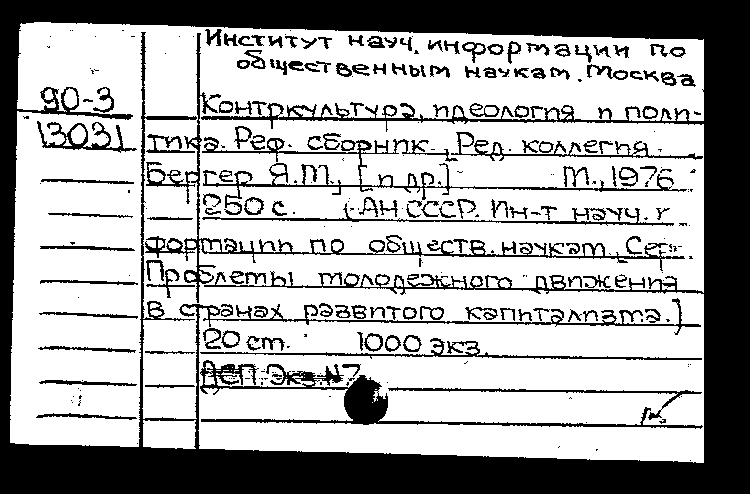 Институт науч. информации по
общественным наукам. Москва
90-3
Контркультура, идеология и поли-
13031
тика. Реф. сборник. [Ред. коллегия
Бергер Я.М., [и др.] М., 1976
250 с. (АН СССР. Ин-т науч.
формации по обществ. наукам. Сер.
Проблемы молодежного движения
в странах развитого капитализма.)
20 см. 1000 экз.
ДСП. Экз. №7